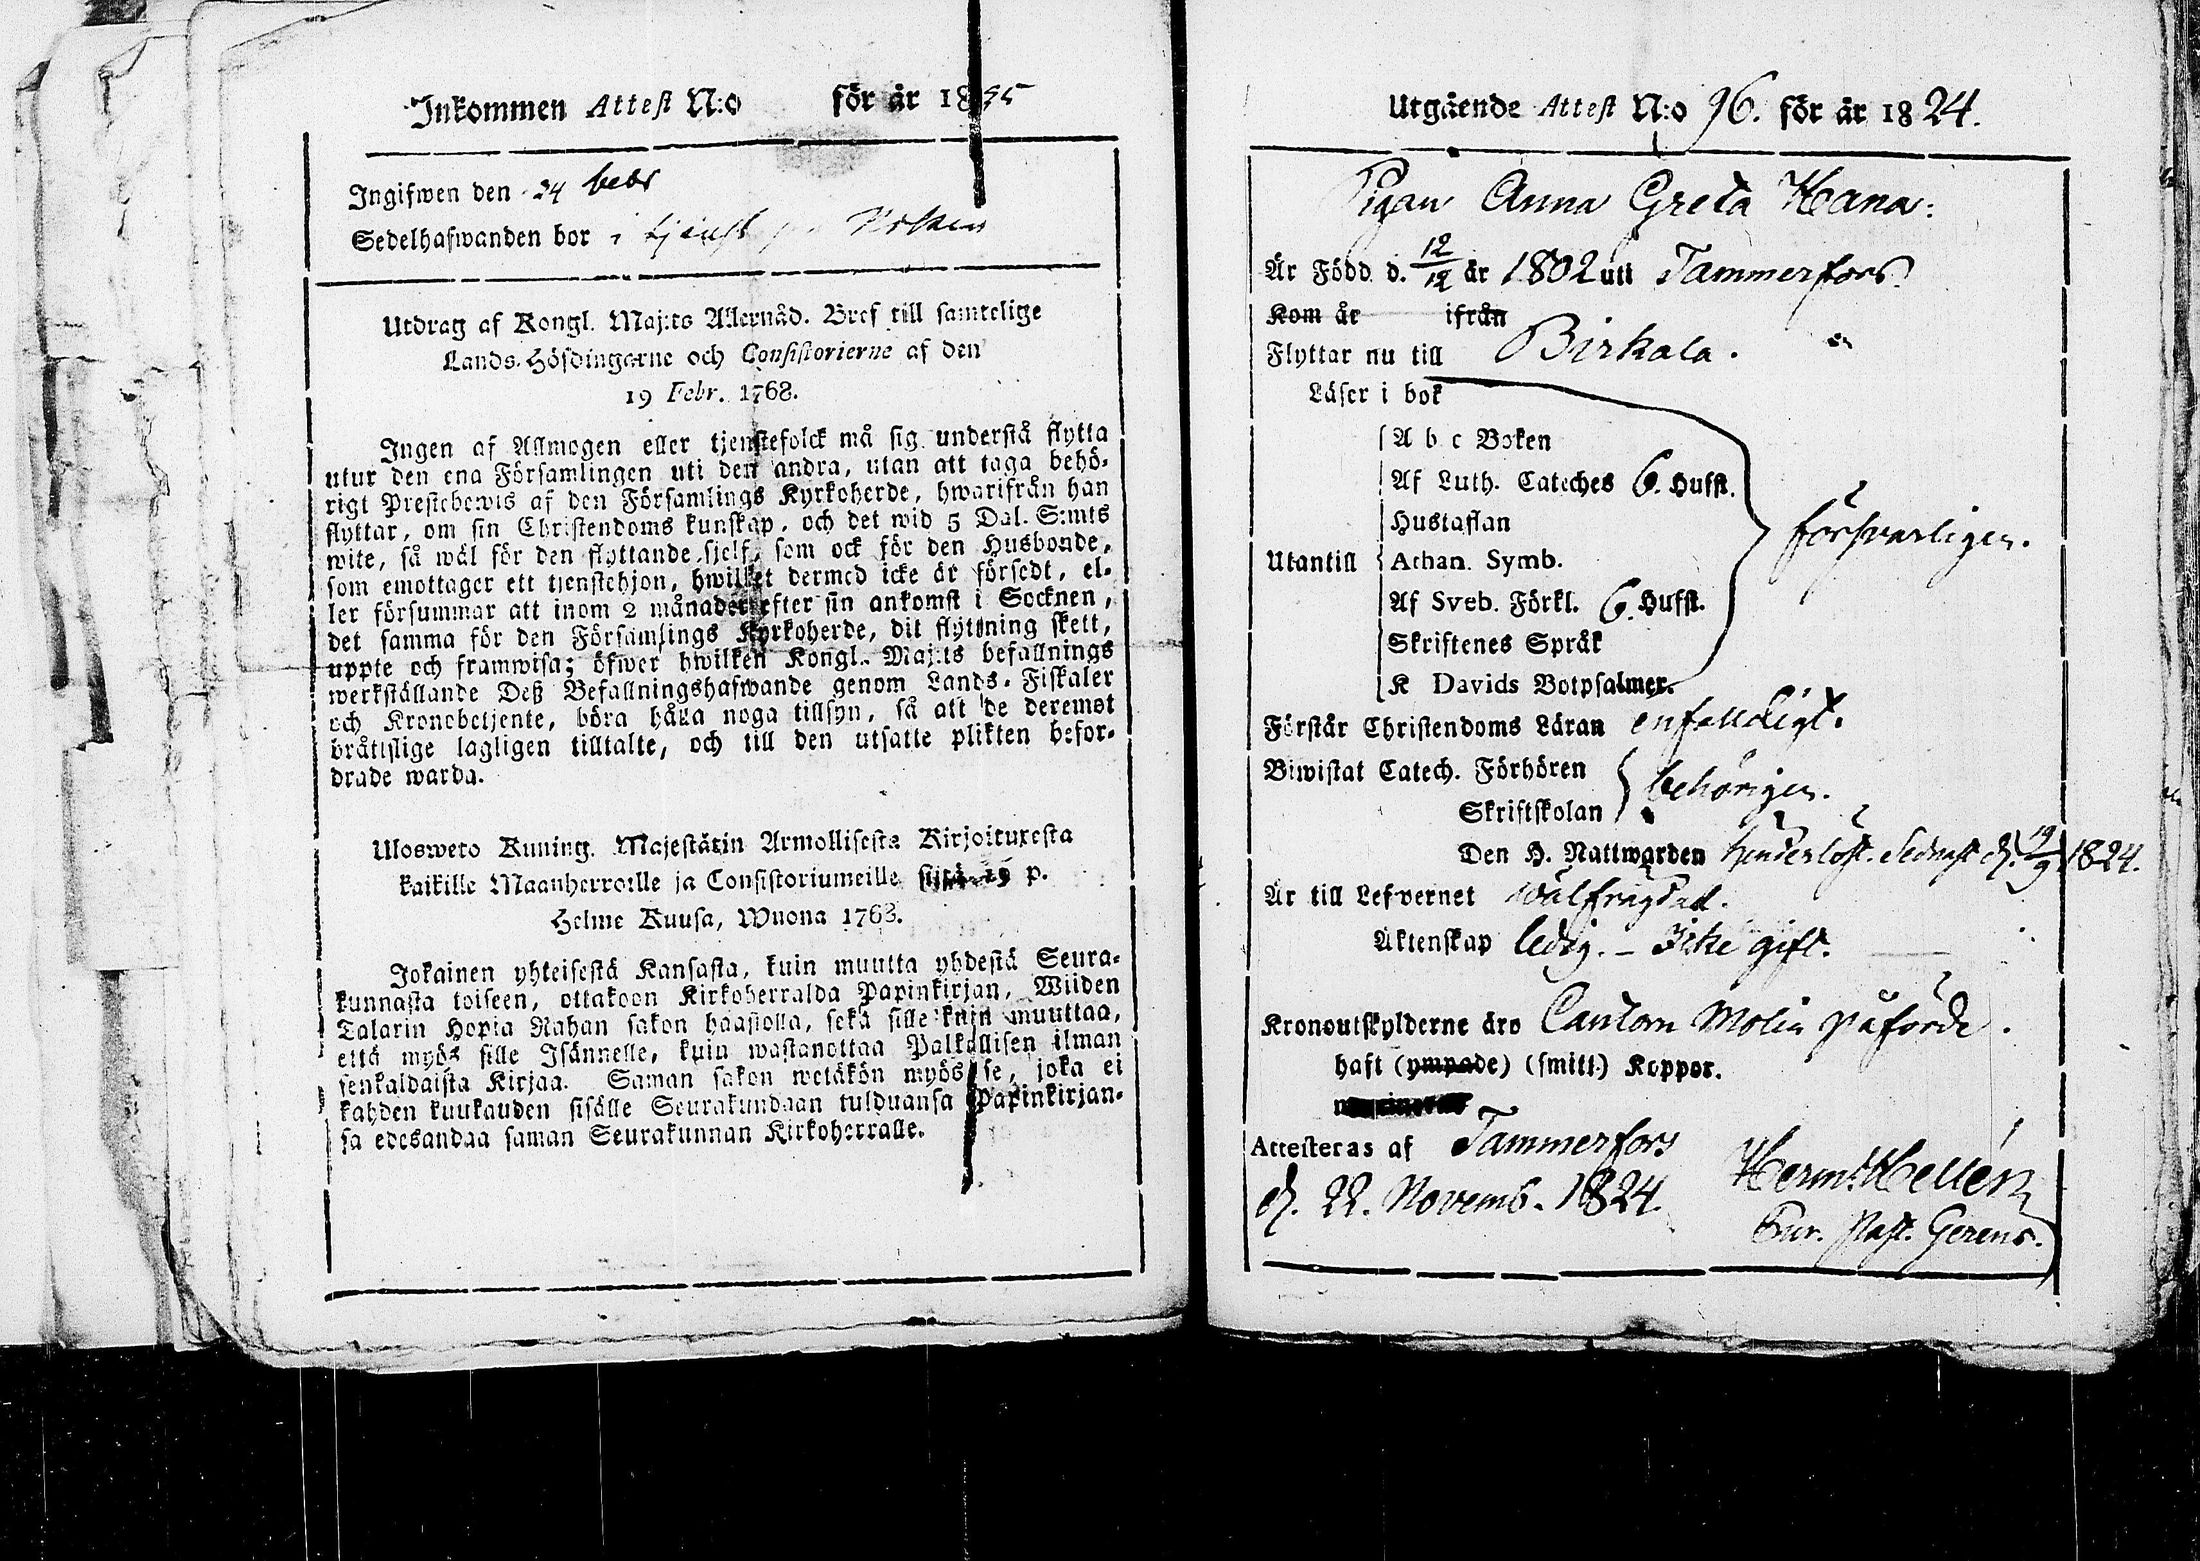 Inkommen Attest N:o för år 1825
Ingifwen den 24
Sedelhafwanden bor i tjenst
Utdrag af Kongl. Maj:ts Allernåd. Bref till samtelige
Lands-Höfdingarne och Consistorierne af den
19 Febr. 1768.
Ingen af Allmogen eller tjenstefolck må sig understå flytta
utur den ena Församlingen uti den andra, utan att taga behö-
rigt Prestebewis af den Församlings Kyrkoherde, hwarifrån han
flyttar, om sin Christendoms kunskap, och det wid 5 Dal. S:mts
wite, så wäl för den flyttande sjelf, som ock för den Husbonde,
som emottager ett tjenstehjon, hwilket dermed icke är försedt, el-
ler försummar att inom 2 månader efter sin ankomst i Socknen,
det samma för den Församlings Kyrkoherde, dit flyttning skett,
uppte och framwisa; öfwer hwilken Kongl. Maj:ts befallnings
werkställande Deß Befallningshafwande genom Lands-Fiskaler
och Kronobetjente, böra hålla noga tillsyn, så att de deremot
bråtislige lagligen tilltalte, och till den utsatte plikten befor-
drade warda.
Ulosweto Kuning. Majestätin Armollisesta Kirjoituxesta
kaikille Maanherroille ja Consistoriumeille siitä 19 p.
Helme Kuusa, Wuona 1768.
Jokainen yhteisestä Kansasta, kuin muutta yhdestä Seura-
kunnasta toiseen, ottakoon Kirkoherralda Papinkirjan, Wiiden
Talarin Hopia Rahan sakon haastolla, sekä sille kuin muuttaa,
että myös sille Isännelle, kuin wastanottaa Palkollisen ilman
senkaldaista Kirjaa. Saman sakon wetäkön myös se, joka ei
kahden kuukauden sisälle Seurakundaan tulduansa Papinkirjan-
sa edesandaa saman Seurakunnan Kirkoherralle.
Utgående Attest N:o 96. för år 1824.
Pigan Anna Greta Hana:
Är Född d. 12/12 år 1802 uti Tammerfors.
Kom år ifrån
Flyttar nu till Birkala.
Läser i bok
A b c Boken
Af Luth. Cateches 6. Hufst.
Hustaflan
Utantill Athan. Symb. försvarligen.
Af Sveb. Förkl. 6. Hufst.
Skriftenes Språk
K Davids Botpsalmer.
Förstår Christendoms Läran enfalldigt.
Biwistat Catech. Förhören behörigen.
Skriftskolan
Den H. Nattwarden hinderlöst. Sednast d. 19/9 1824.
Är till Lefvernet wälfrägdad.
Äktenskap ledig. - Icke gift.
Kronoutskylderne äro Cantorn Molin påförde.
haft (ympade) (smitt.) Koppor.
Attesteras af Tammerfors
d. 22. Novemb. 1824. Herm. Hellén
Cur. Past. Gerens.